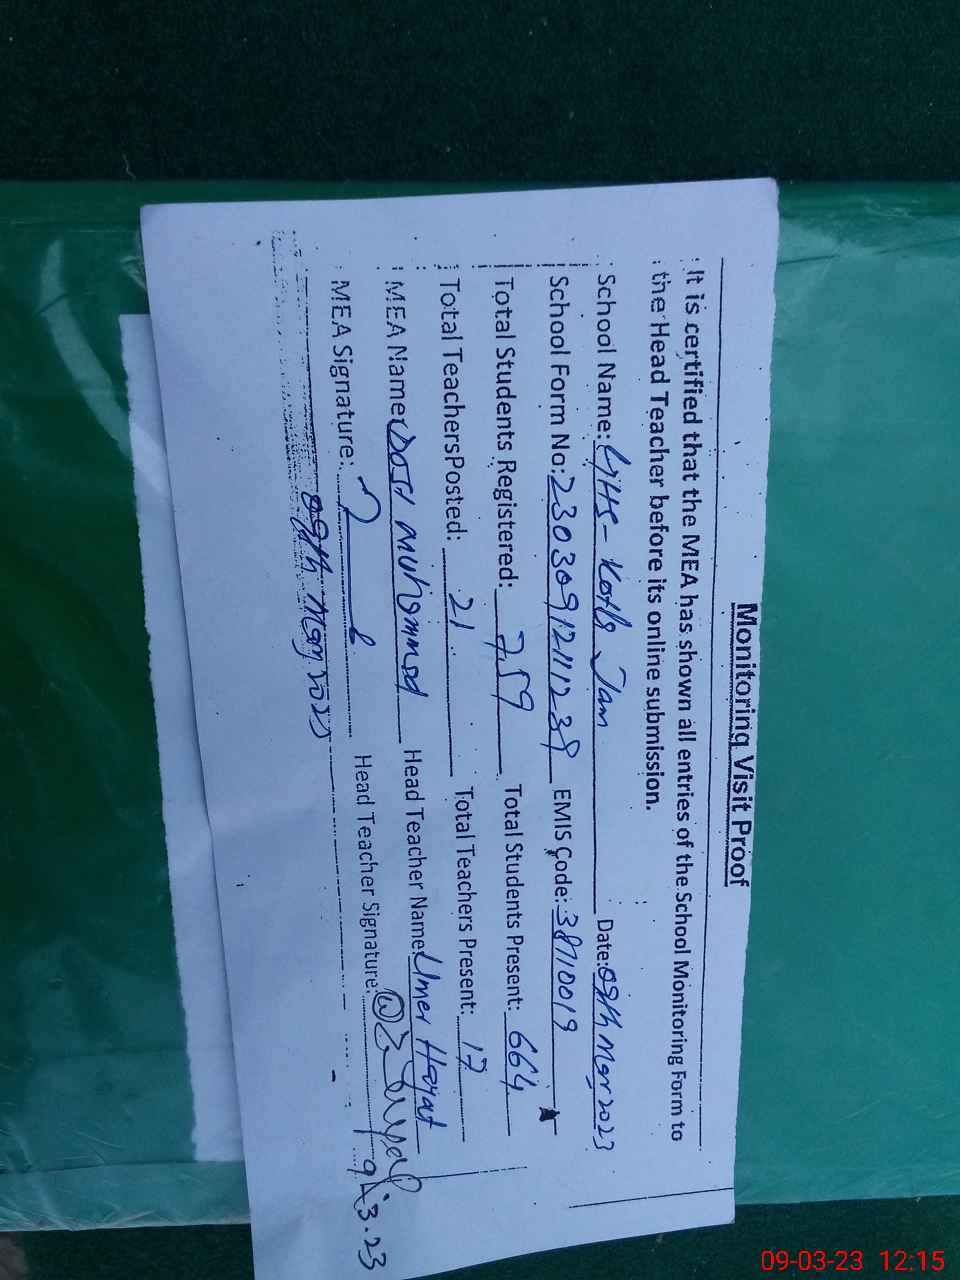 Monitoring Visit Proof
It is certified that the MEA has shown all entries of the School Monitoring Form to
the Head Teacher before its online submission.
School Name: GHS- Kotla Jam Date: 09th Mar 2023
School Form No: 2303091211239 EMIS Code: 38710019
Total Students Registered: 759 Total Students Present: 664
Total TeachersPosted: 21 Total Teachers Present: 17
MEA Name: Dost Muhammad Head Teacher Name: Umer Hayat
MEA Signature: Head Teacher Signature:
09th Mar 2023 9.3.23
09-03-23 12:15